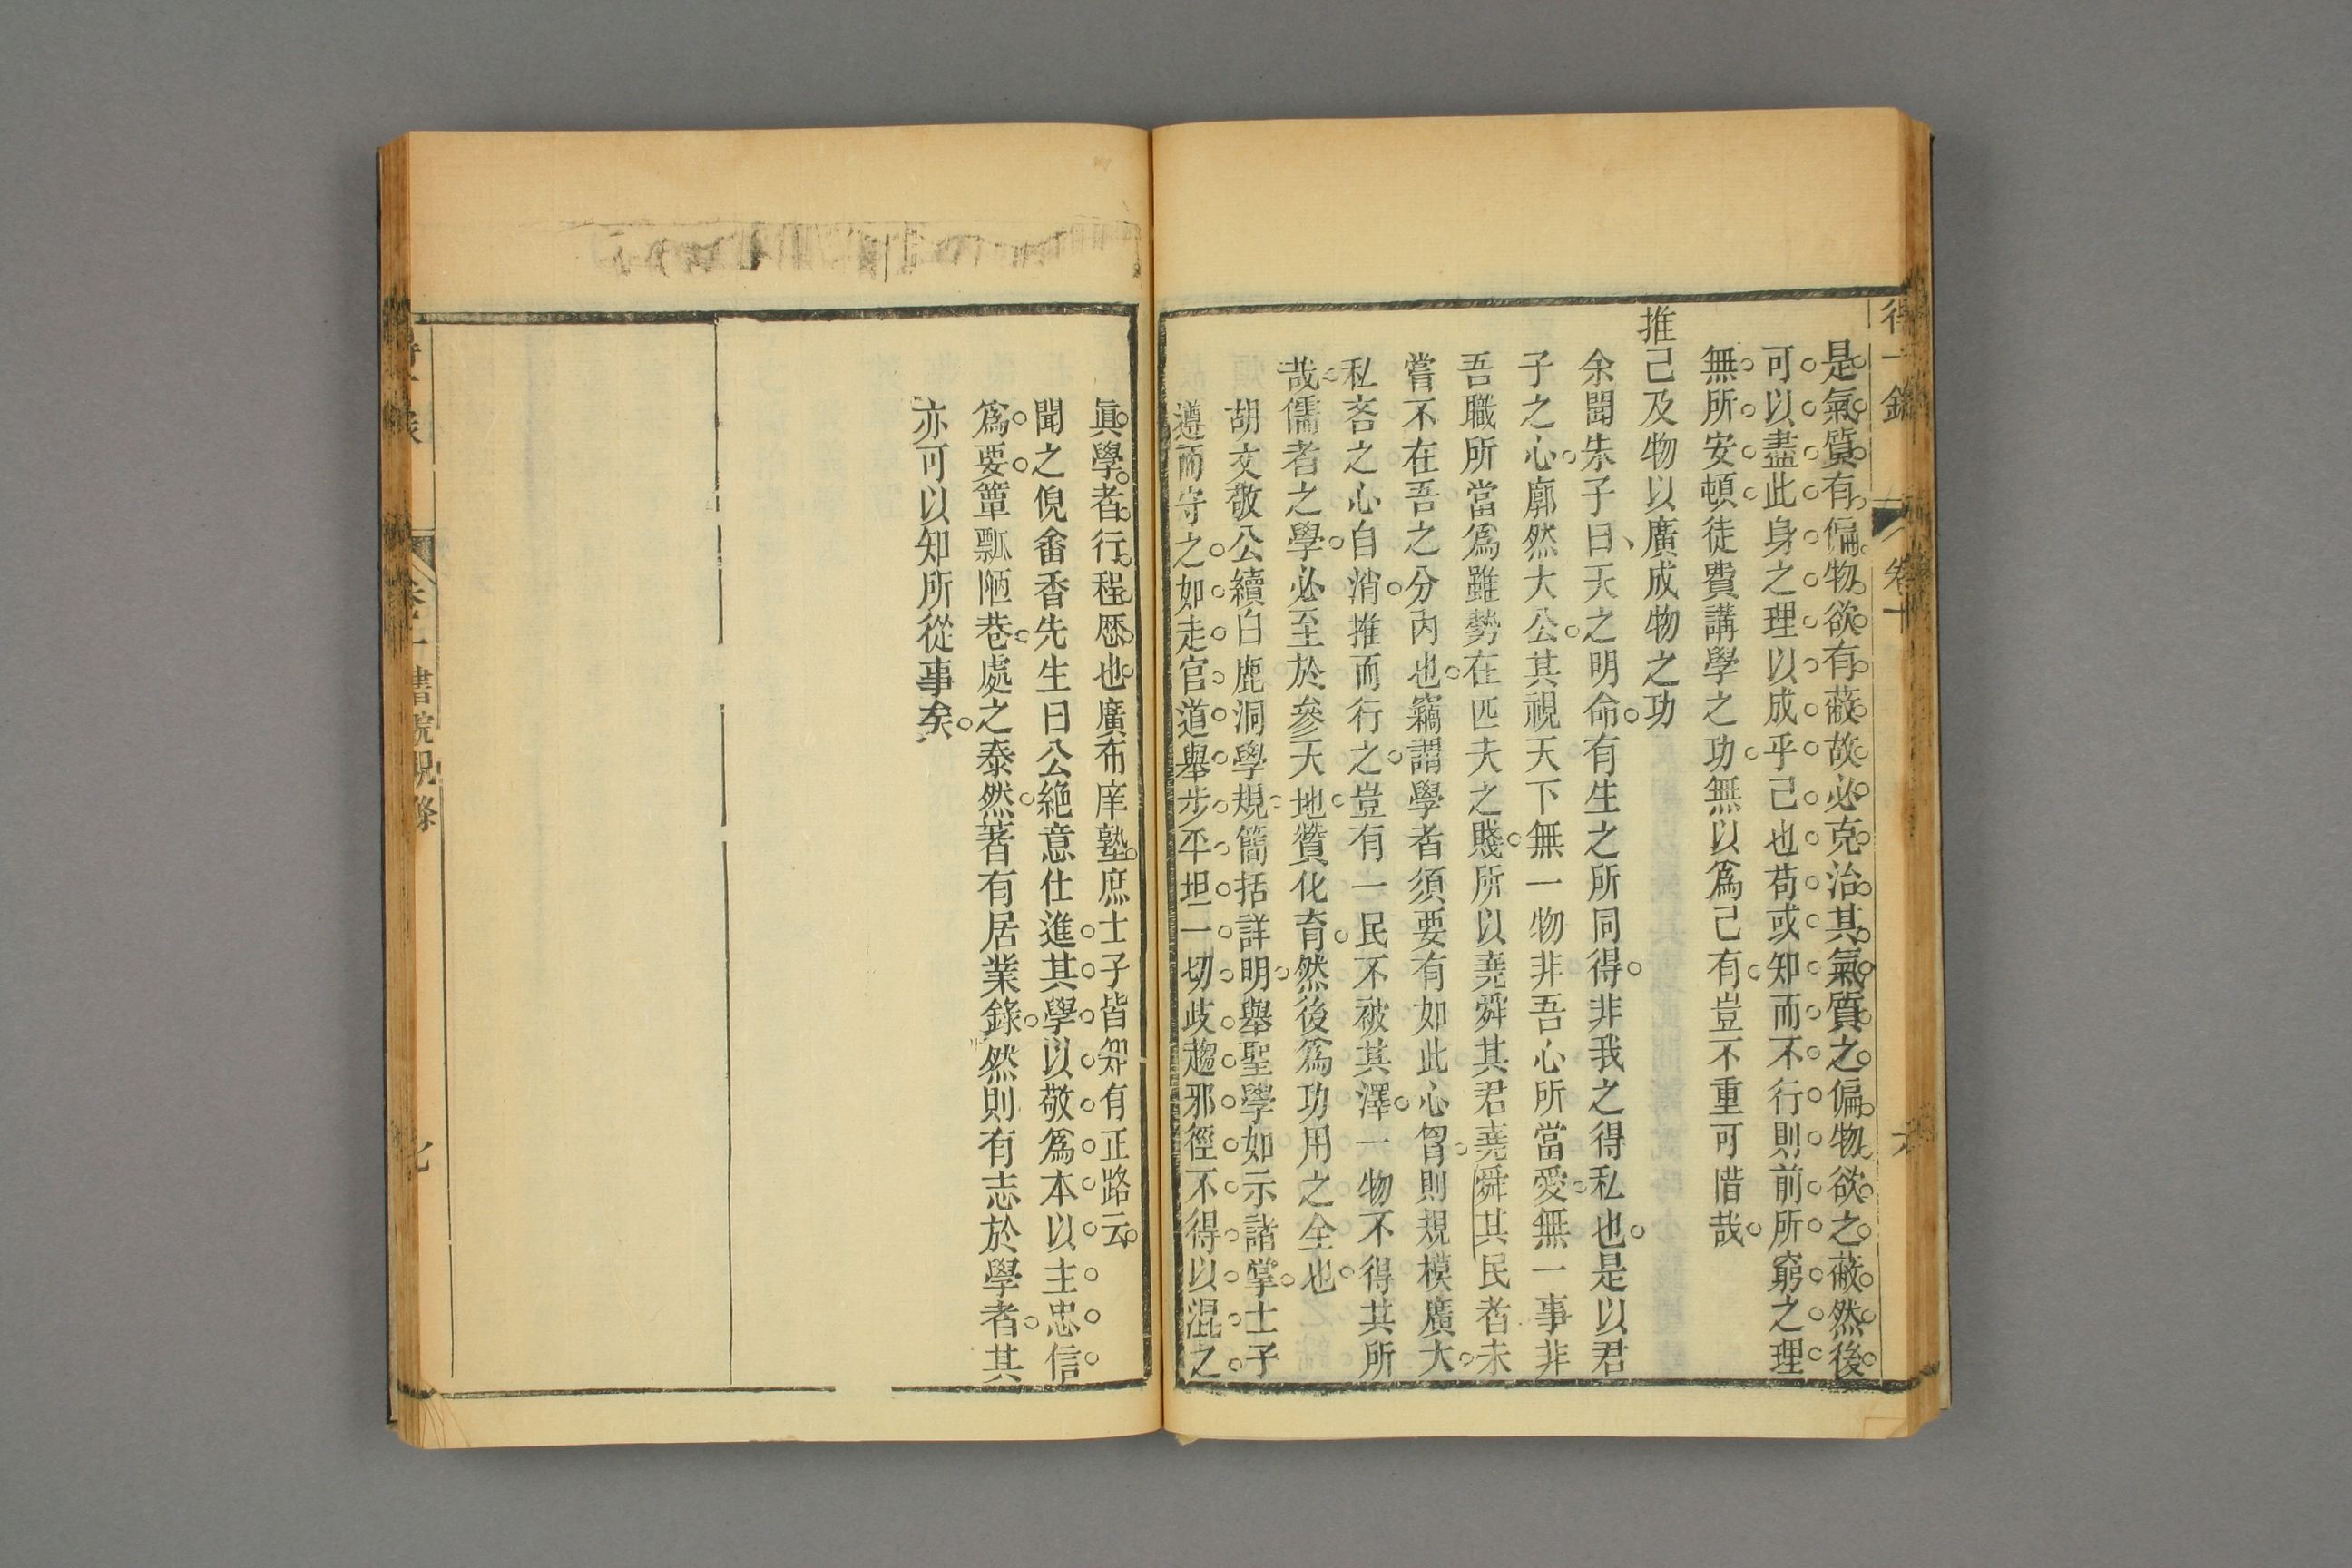 得一錄 卷十 六
是氣質有偏物欲有蔽故必克治其氣質之偏物欲之蔽然後
可以盡此身之理以成乎己也苟或知而不行則前所窮之理
無所安頓徒費講學之功無以爲己有豈不重可惜哉
推己及物以廣成物之功
余聞朱子曰天之明命有生之所同得非我之得私也是以君
子之心廓然大公其視天下無一物非吾心所當愛無一事非
吾職所當爲雖勢在匹夫之賤所以堯舜其君堯舜其民者未
嘗不在吾之分內也竊謂學者須要有如此心胷則規模廣大
私吝之心自消推而行之豈有一民不被其澤一物不得其所
哉儒者之學必至於參天地贊化育然後爲功用之全也
胡文敬公續白鹿洞學規簡括詳明舉聖學如示諸掌士子
遵而守之如走官道舉步平坦一切歧趨邪徑不得以混之
眞學者行程歷也廣布庠塾庶士子皆知有正路云
聞之倪畬香先生曰公絶意仕進其學以敬爲本以主忠信
爲要簞瓢陋巷處之泰然著有居業錄然則有志於學者其
亦可以知所從事矣
書院規條